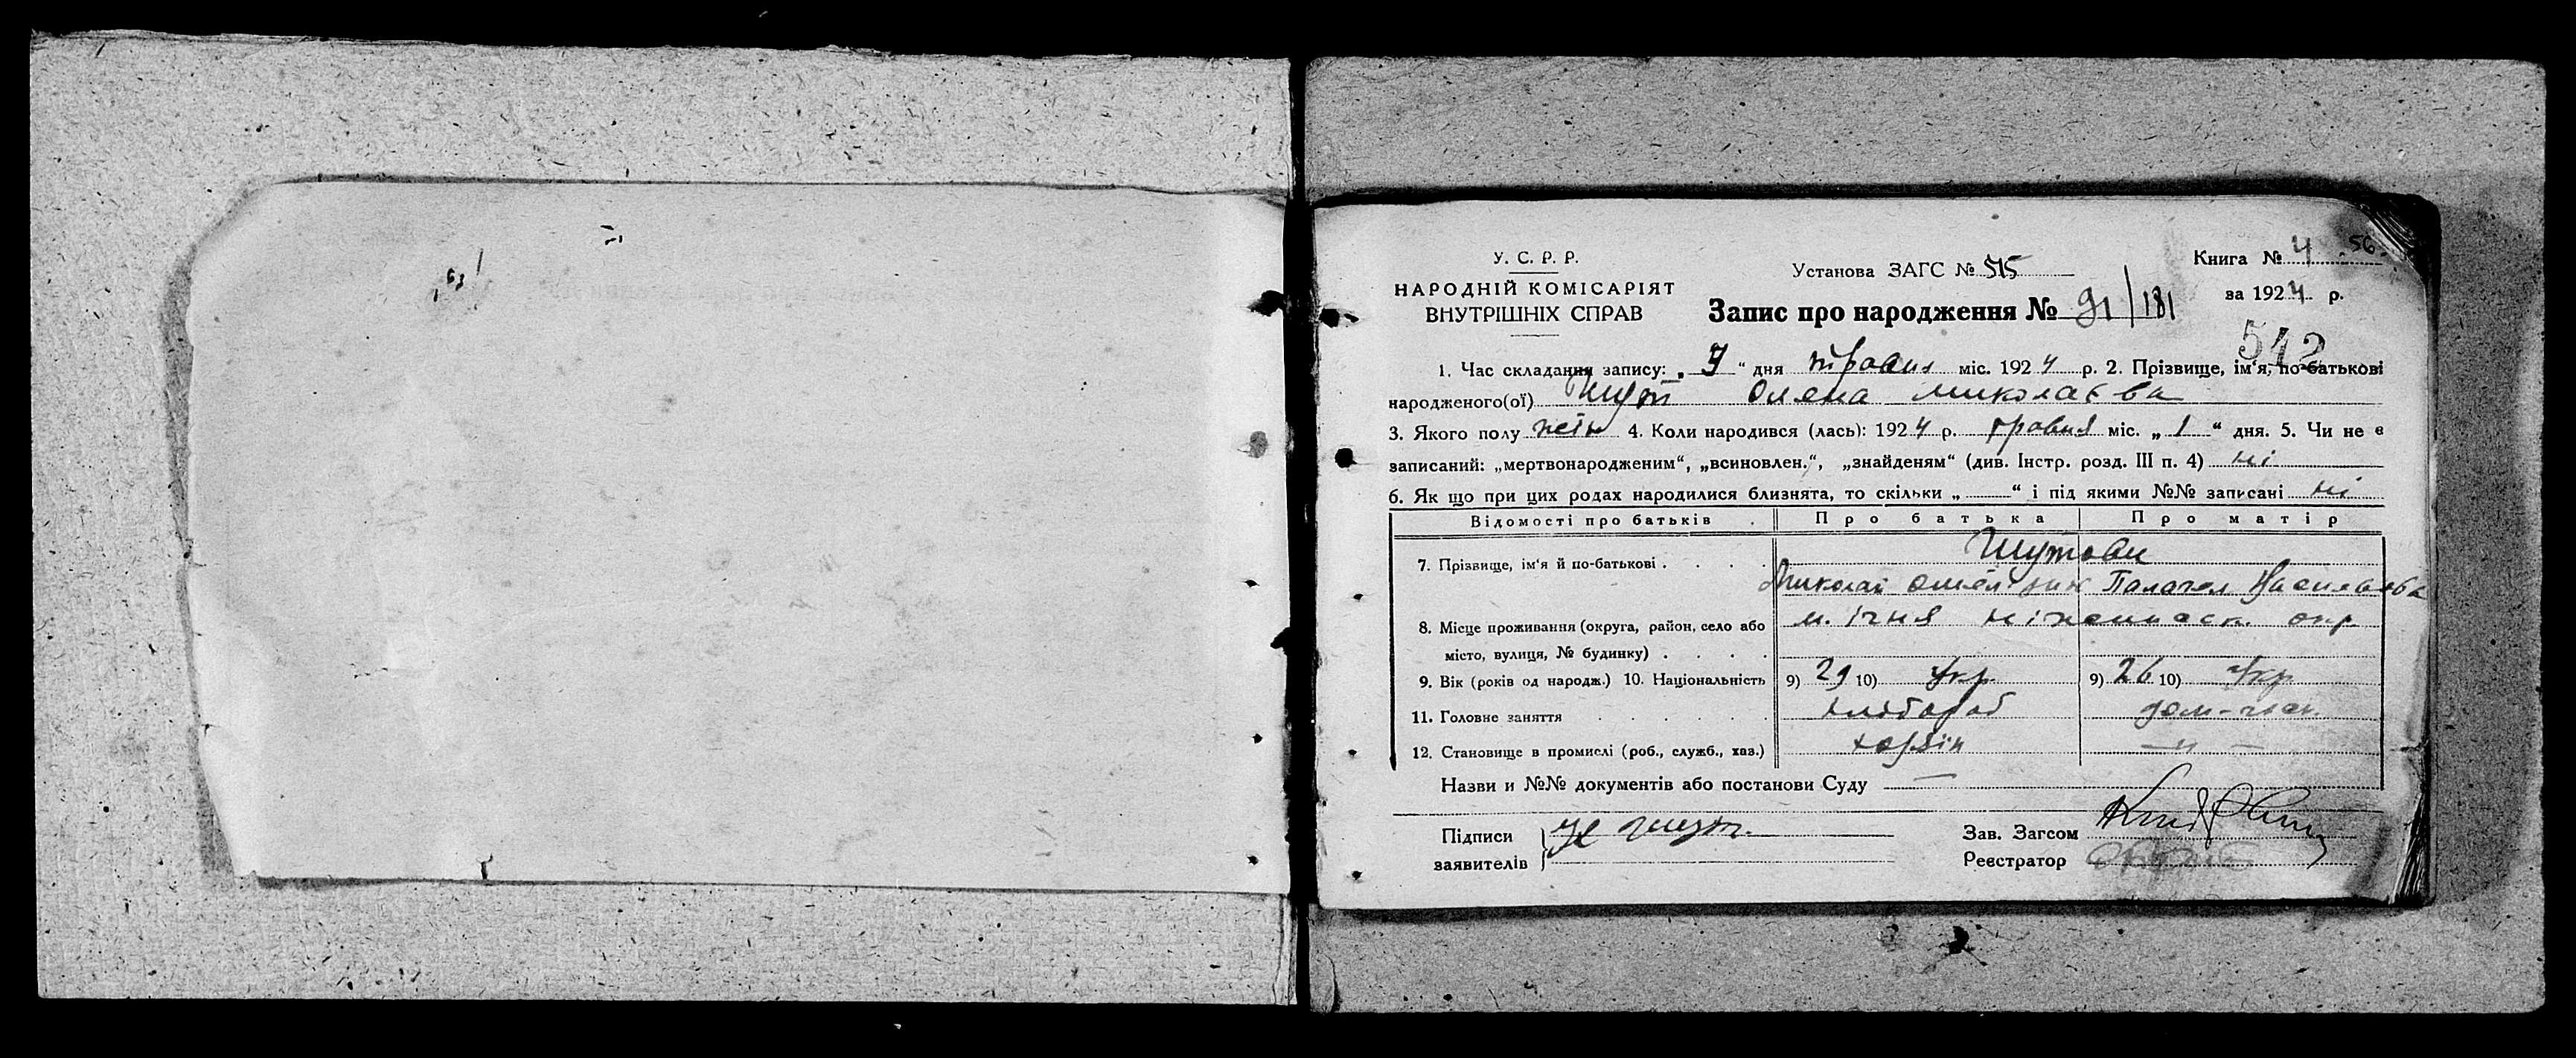 У. С. Р. Р.
НАРОДНІЙ КОМІСАРІЯТ
ВНУТРІШНІХ СПРАВ
Установа ЗАГС № 515
Книга № 4 56
за 1924 р.
Запис про народження № 91/181
542
1. Час складання запису: „7“ дня травня міс. 1924 р. 2. Прізвище, ім‘я, по-батькові
народженого(ої) Шут Олена Миколаєва
3. Якого полу жін 4. Коли народився (лась): 1924 р. травня міс. „1“ дня. 5. Чи не є
записаний: „мертвонародженим“, „всиновлен.“, „знайденям“ (див. Інстр. розд. III п. 4) ні
6. Як що при цих родах народилися близнята, то скільки „ “ і під якими №№ записані ні
Відомості про батьків Про батька Про матір
7. Прізвище, ім‘я й по-батькові . . . . Шутови
Миколай Палагея Васильева
8. Місце проживання (округа, район, село або м. Ічня ніженськ. окр.
місто, вулиця, № будинку) . . . .
9. Вік (років од народж.) 10. Національність 9) 29 10) Укр. 9) 26 10) Укр
11. Головне заняття . . . . . . хлібороб дом-госп.
12. Становище в промислі (роб., служб., хаз.) хазяїн — " —
Назви и №№ документів або постанови Суду —
Підписи Шут
заявителів
Зав. Загсом
Реєстратор